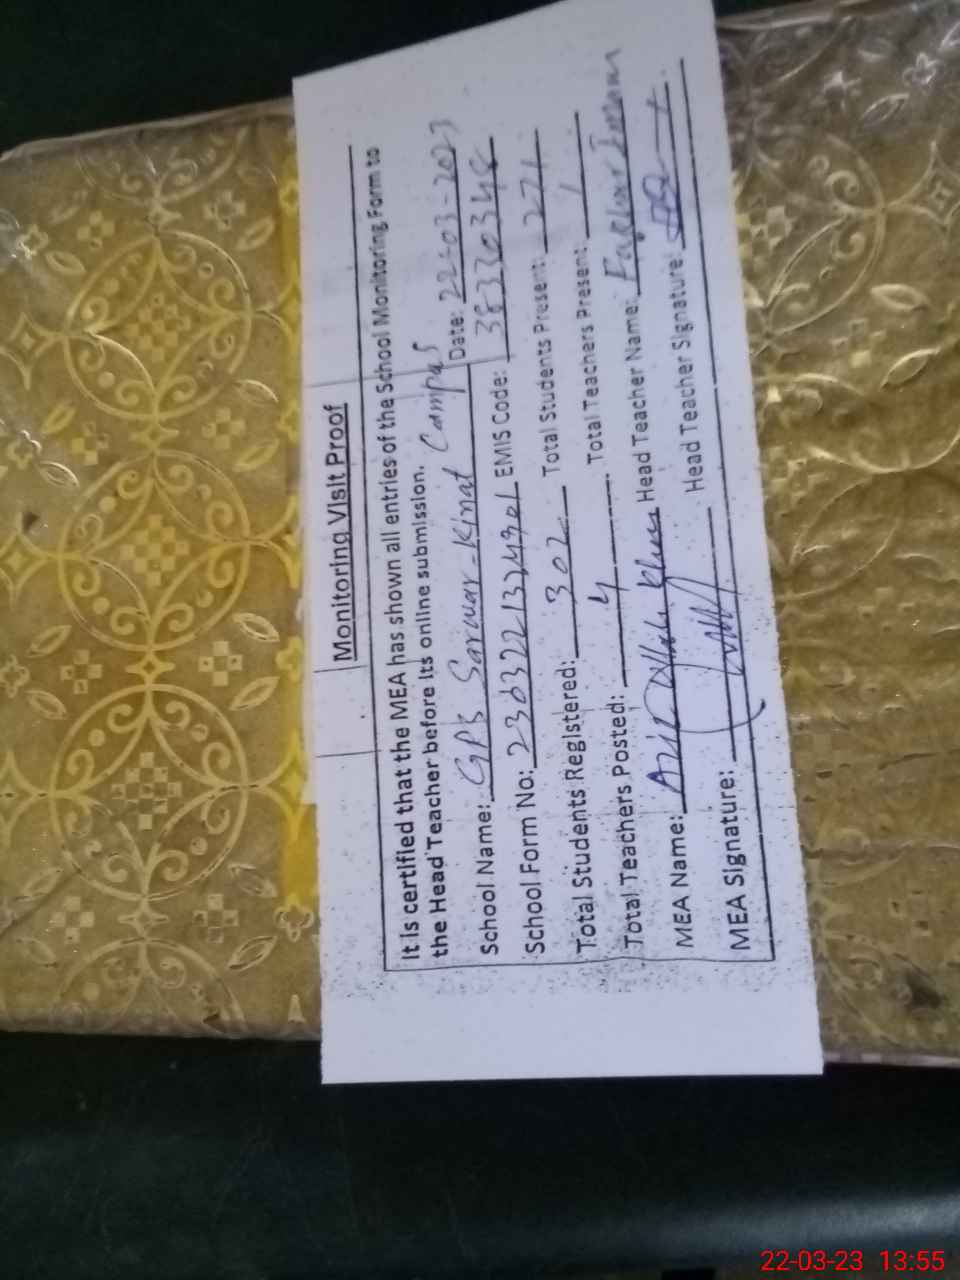 Monitoring Visit Proof
It is certified that the MEA has shown all entries of the School Monitoring Form to
the Head Teacher before its online submission.
School Name: GPS Sarwar Kinat Campus Date: 22-03-2023
School Form No: EMIS Code: 38330348
Total Students Registered: 302 Total Students Present: 271
Total Teachers Posted: 4 Total Teachers Present: 1
MEA Name: Head Teacher Name:
MEA Signature: Head Teacher Signature:
22-03-23 13:55